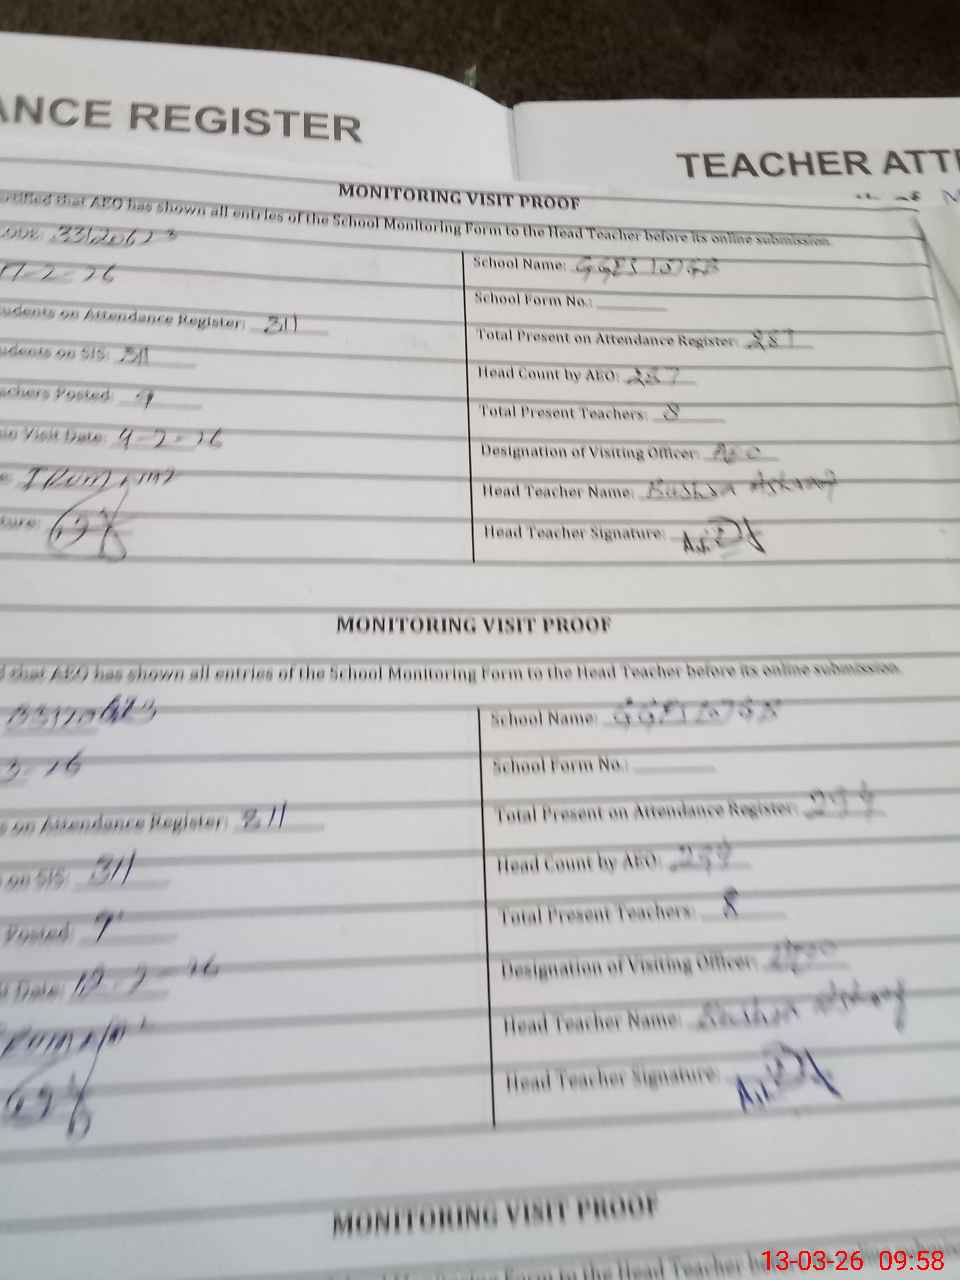 ANCE REGISTER
TEACHER ATTE
MONITORING VISIT PROOF
ertified that AEO has shown all entries of the School Monitoring Form to the Head Teacher before its online submission.
33120623
School Name: GGES 107GB
17-2-26
School Form No.:
udents on Attendance Register: 311
Total Present on Attendance Register: 287
udents on SIS: 311
Head Count by AEO: 287
achers Posted: 9
Total Present Teachers: 8
Visit Date: 9-2-26
Designation of Visiting Officer: AEO
Head Teacher Name: Bushra Ashraf
ture:
Head Teacher Signature:
MONITORING VISIT PROOF
d that AEO has shown all entries of the School Monitoring Form to the Head Teacher before its online submission.
33120623
School Name: GGES 107GB
3-26
School Form No.:
s on Attendance Register: 311
Total Present on Attendance Register:
on SIS: 311
Head Count by AEO:
Posted: 9
Total Present Teachers: 8
t Date:
Designation of Visiting Officer: AEO
Head Teacher Name: Bushra Ashraf
Head Teacher Signature:
MONITORING VISIT PROOF
Monitoring Form to the Head Teacher
13-03-26 09:58